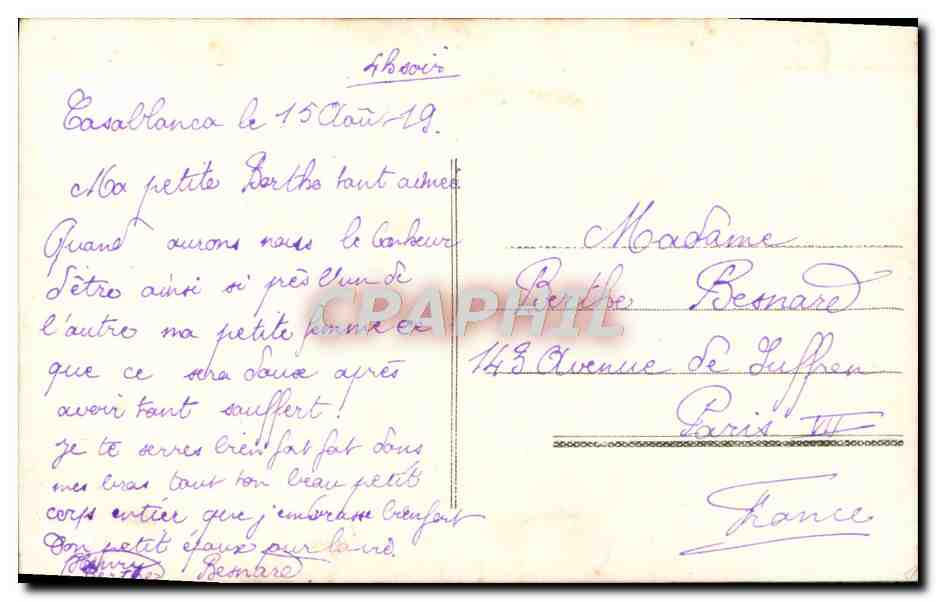 4h soir
Casablanca le 15 Août 19.
Ma petite Berthe tant aimée
Quand aurons nous le bonheur
d'être ainsi si près l'un de
l'autre ma petite femme et
que ce sera doux après
avoir tant souffert.
Je te serres bien fort fort dans
mes bras tout ton beau petit
corps entier que j'embrasse bien fort
Ton petit époux pour la vie.
Henry
Berthe Besnard
Madame
Berthe Besnard
143 Avenue de Suffren
Paris VII
France
CPAPHIL